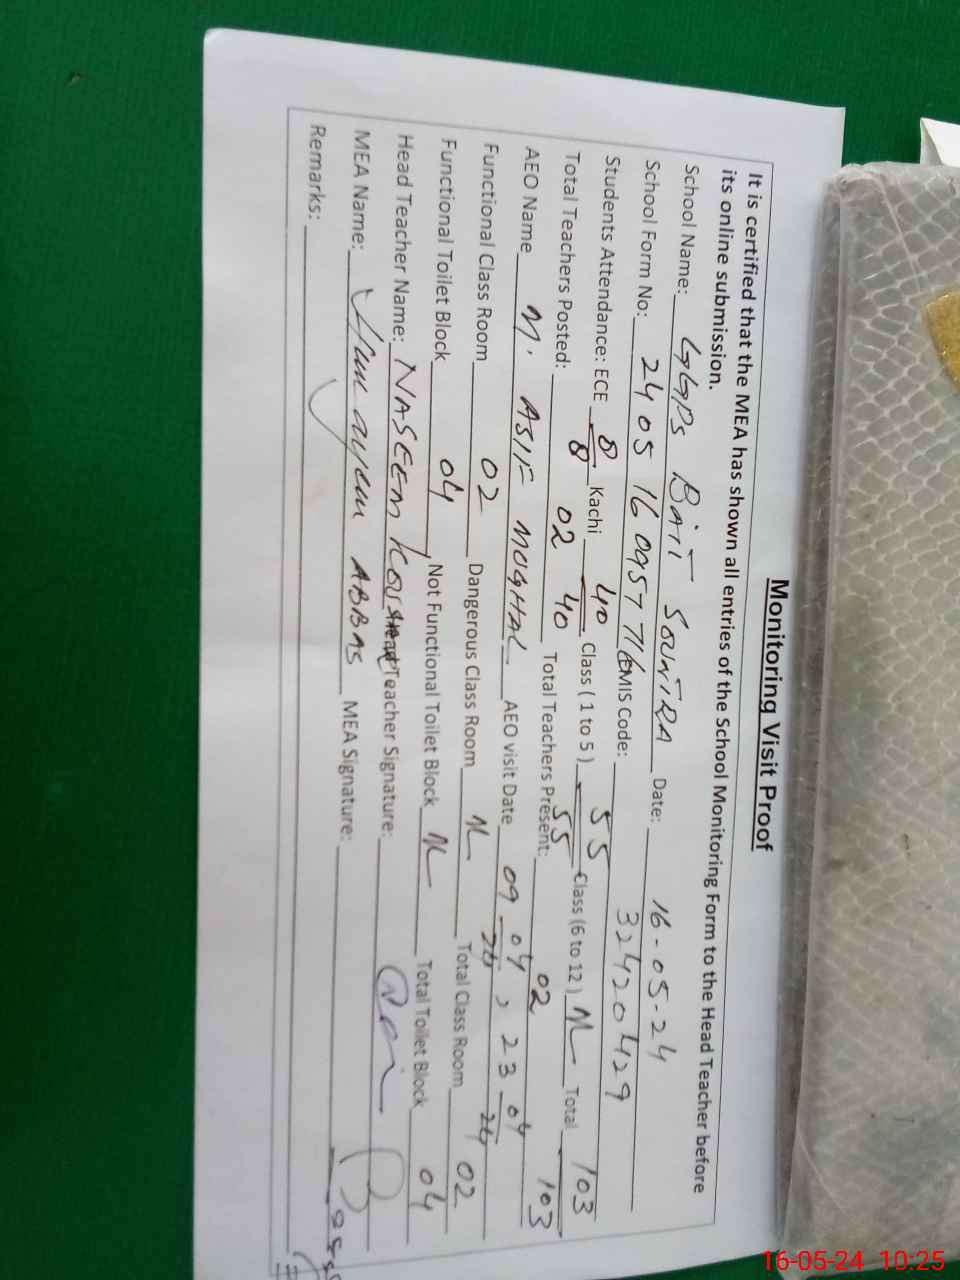 Monitoring Visit Proof
It is certified that the MEA has shown all entries of the School Monitoring Form to the Head Teacher before
its online submission.
School Name: GGPS BAIT SOUNTRA Date: 16-05-24
School Form No: 2405 16 0957 716 EMIS Code: 32420429
Students Attendance: ECE 8/8 Kachi 40/40 Class ( 1 to 5 ) 55/55 Class (6 to 12 ) NL Total 103/103
Total Teachers Posted: 02 Total Teachers Present: 02
AEO Name M. ASIF MUGHAL AEO visit Date 09-04-24, 23-04-24
Functional Class Room 02 Dangerous Class Room NL Total Class Room 02
Functional Toilet Block 04 Not Functional Toilet Block NL Total Toilet Block 04
Head Teacher Name: NASEEM Head Teacher Signature:
MEA Name: ABBAS MEA Signature:
Remarks:
16-05-24 10:25